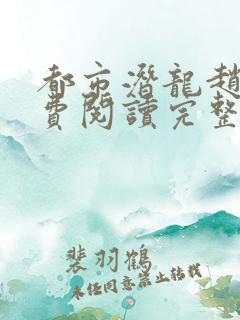 都市潛龍趙
費閱讀完整
裴羽鶴
未经同意禁止转载